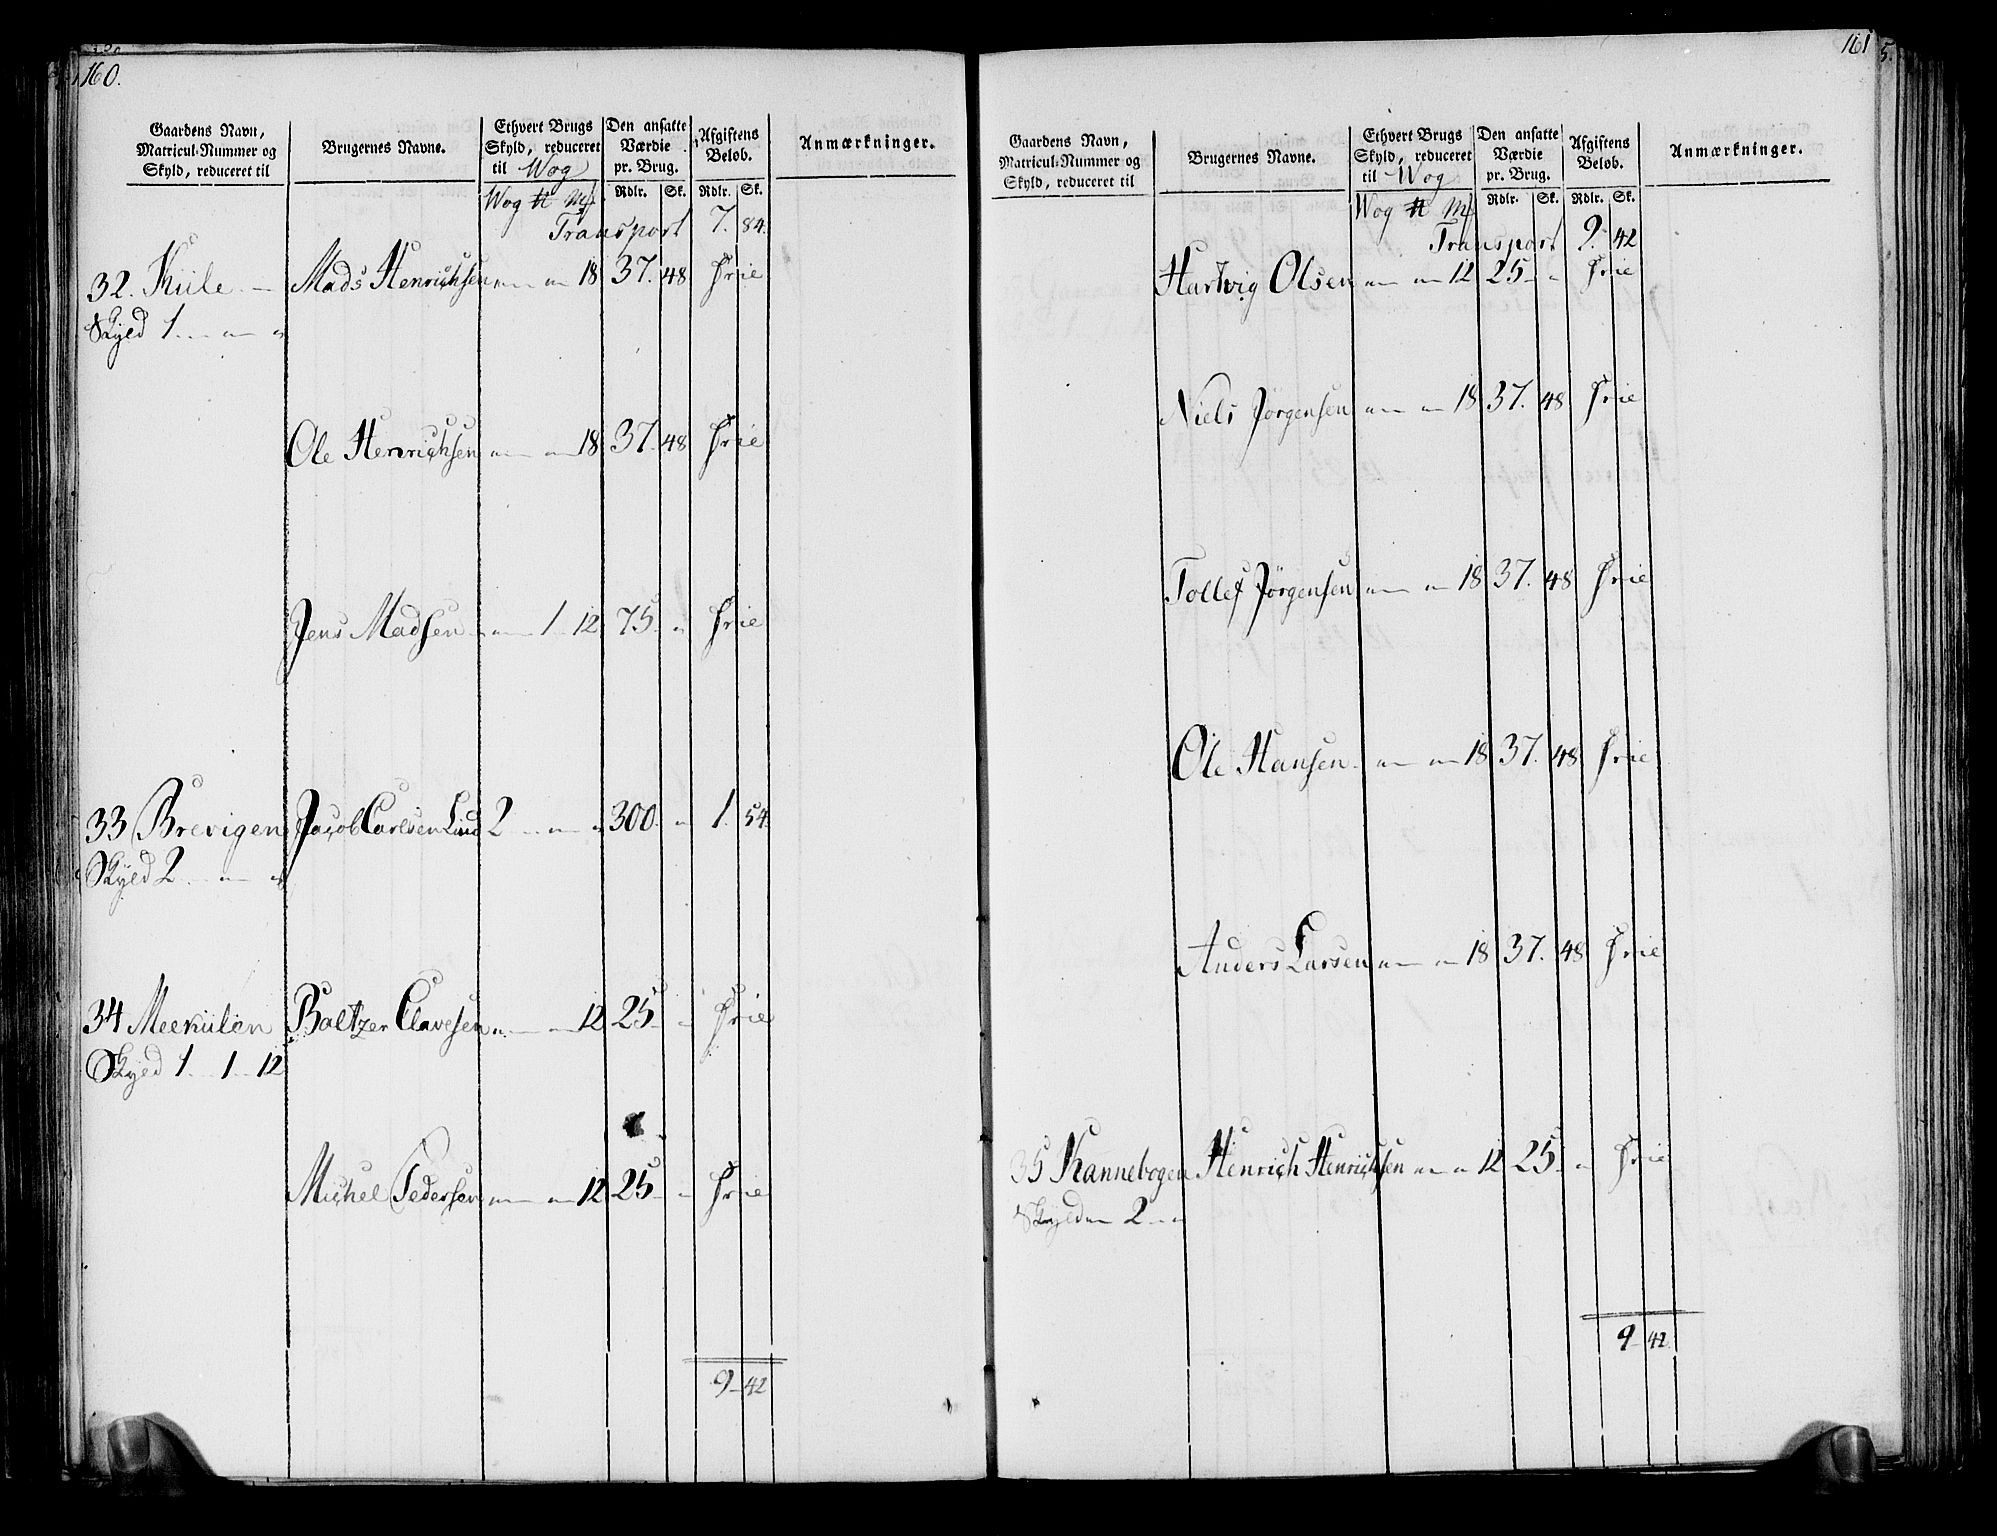 160.
Gaardens Navn, Matricul-Nummer og Skyld, reduceret til
Brugernes Navne.
Ethvert Brugs Skyld, reduceret til Wog
Den ansatte Værdie pr. Brug.
Afgiftens Beløb.
Anmærkninger.
Wog ℔ Mk Rdlr. Sk. Rdlr. Sk.
Transport 7. 84.
32. Kiile — Mads Henrichsen " " 18 37. 48 Frie
Skyld 1 " "
Ole Henrichsen " " 18 37. 48 Frie
Jens Madsen " 1 12 75 " Frie
33 Brevigen Jacob Carlsen Lind 2 " " 300 " 1. 54.
Skyld 2 " "
34 Meekiilen Baltzer Clavesen " " 12 25 " Frie
Skyld 1 1 12
Michel Pedersen " " 12 25 " Frie
9 42
161
5.
Gaardens Navn, Matricul-Nummer og Skyld, reduceret til
Brugernes Navne.
Ethvert Brugs Skyld, reduceret til Wog
Den ansatte Værdie pr. Brug.
Afgiftens Beløb.
Anmærkninger.
Wog ℔ Mk Rdlr. Sk. Rdlr. Sk.
Transport 9. 42
Hartvig Olsen " " 12 25 " Frie
Niels Jørgensen " " 18 37. 48 Frie
Tollef Jørgensen " " 18 37. 48 Frie
Ole Hansen " " 18 37. 48 Frie
Anders Larsen " " 18 37. 48 Frie
35 Kannebogen Henrich Henrichsen " " 12 25 " Frie
Skyld " 2 "
9 42.